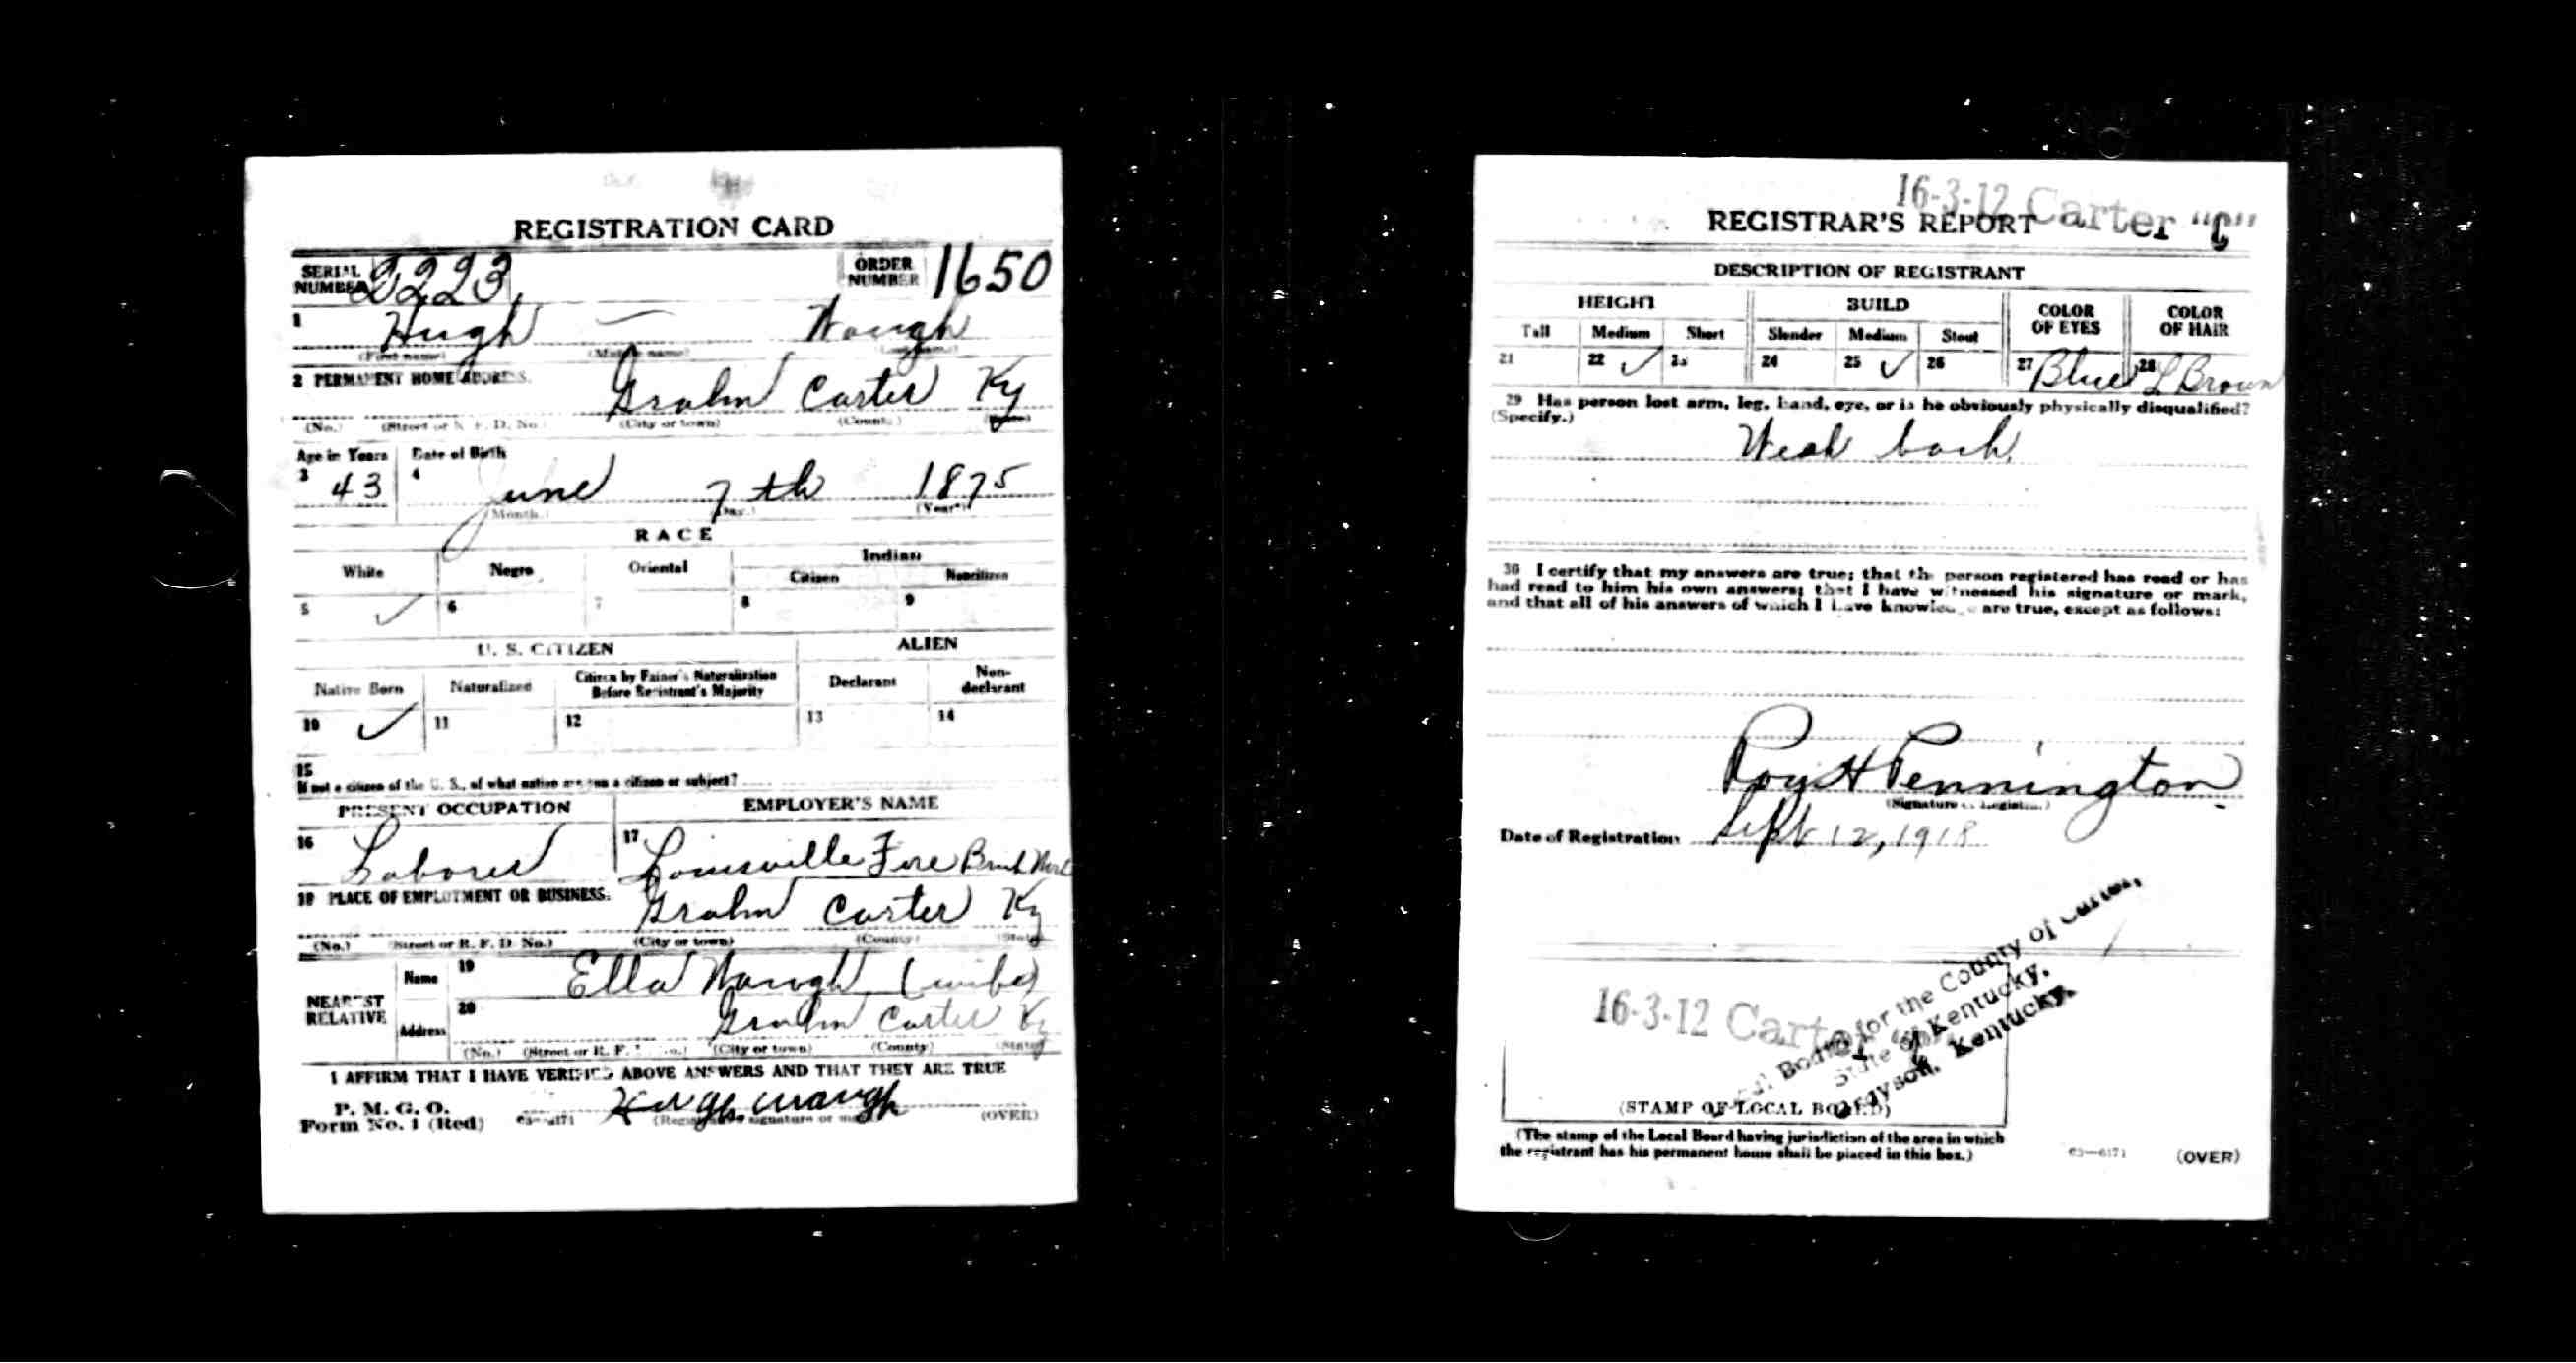 REGISTRATION CARD
SERIAL NUMBER 2223 ORDER NUMBER 1650
1 Hugh — Waugh
(First name) (Middle name) (Last name)
2 PERMANENT HOME ADDRESS
Grahn Carter Ky
(No.) (Street or R. F. D. No.) (City or town) (County) (State)
Age in Years Date of Birth
3 43 4 June 7th 1875
(Month.) (Day.) (Year.)
RACE
White Negro Oriental Indian
Citizen Noncitizen
5 ✓ 6 7 8 9
U. S. CITIZEN ALIEN
Native Born Naturalized Citizen by Father's Naturalization Before Registrant's Majority Declarant Non-declarant
10 ✓ 11 12 13 14
15
If not a citizen of the U. S., of what nation are you a citizen or subject?
PRESENT OCCUPATION EMPLOYER'S NAME
16 Laborer 17 Louisville Fire Brick
18 PLACE OF EMPLOYMENT OR BUSINESS:
Grahn Carter Ky
(No.) (Street or R. F. D. No.) (City or town) (County) (State)
NEAREST RELATIVE
Name 19 Ella Waugh (wife)
Address 20 Grahn Carter Ky
(No.) (Street or R. F. D. No.) (City or town) (County) (State)
I AFFIRM THAT I HAVE VERIFIED ABOVE ANSWERS AND THAT THEY ARE TRUE
P. M. G. O.
Form No. 1 (Red) 03—6171 Hugh waugh (OVER)
(Registrant's signature or mark)
16-3-12 Carter "C"
REGISTRAR'S REPORT
DESCRIPTION OF REGISTRANT
HEIGHT BUILD COLOR OF EYES COLOR OF HAIR
Tall Medium Short Slender Medium Stout
21 22 ✓ 23 24 25 ✓ 26 27 Blue 28 L Brown
29 Has person lost arm, leg, hand, eye, or is he obviously physically disqualified?
(Specify.)
Weak back
30 I certify that my answers are true; that the person registered has read or has
had read to him his own answers; that I have witnessed his signature or mark,
and that all of his answers of which I have knowledge are true, except as follows:
Roy H Pennington
(Signature of Registrar)
Date of Registration Sept 12, 1918
Local Board for the County of Carter,
State of Kentucky,
Grayson, Kentucky.
16-3-12 Carter "C"
(STAMP OF LOCAL BOARD)
(The stamp of the Local Board having jurisdiction of the area in which
the registrant has his permanent home shall be placed in this box.)
03—6171 (OVER)